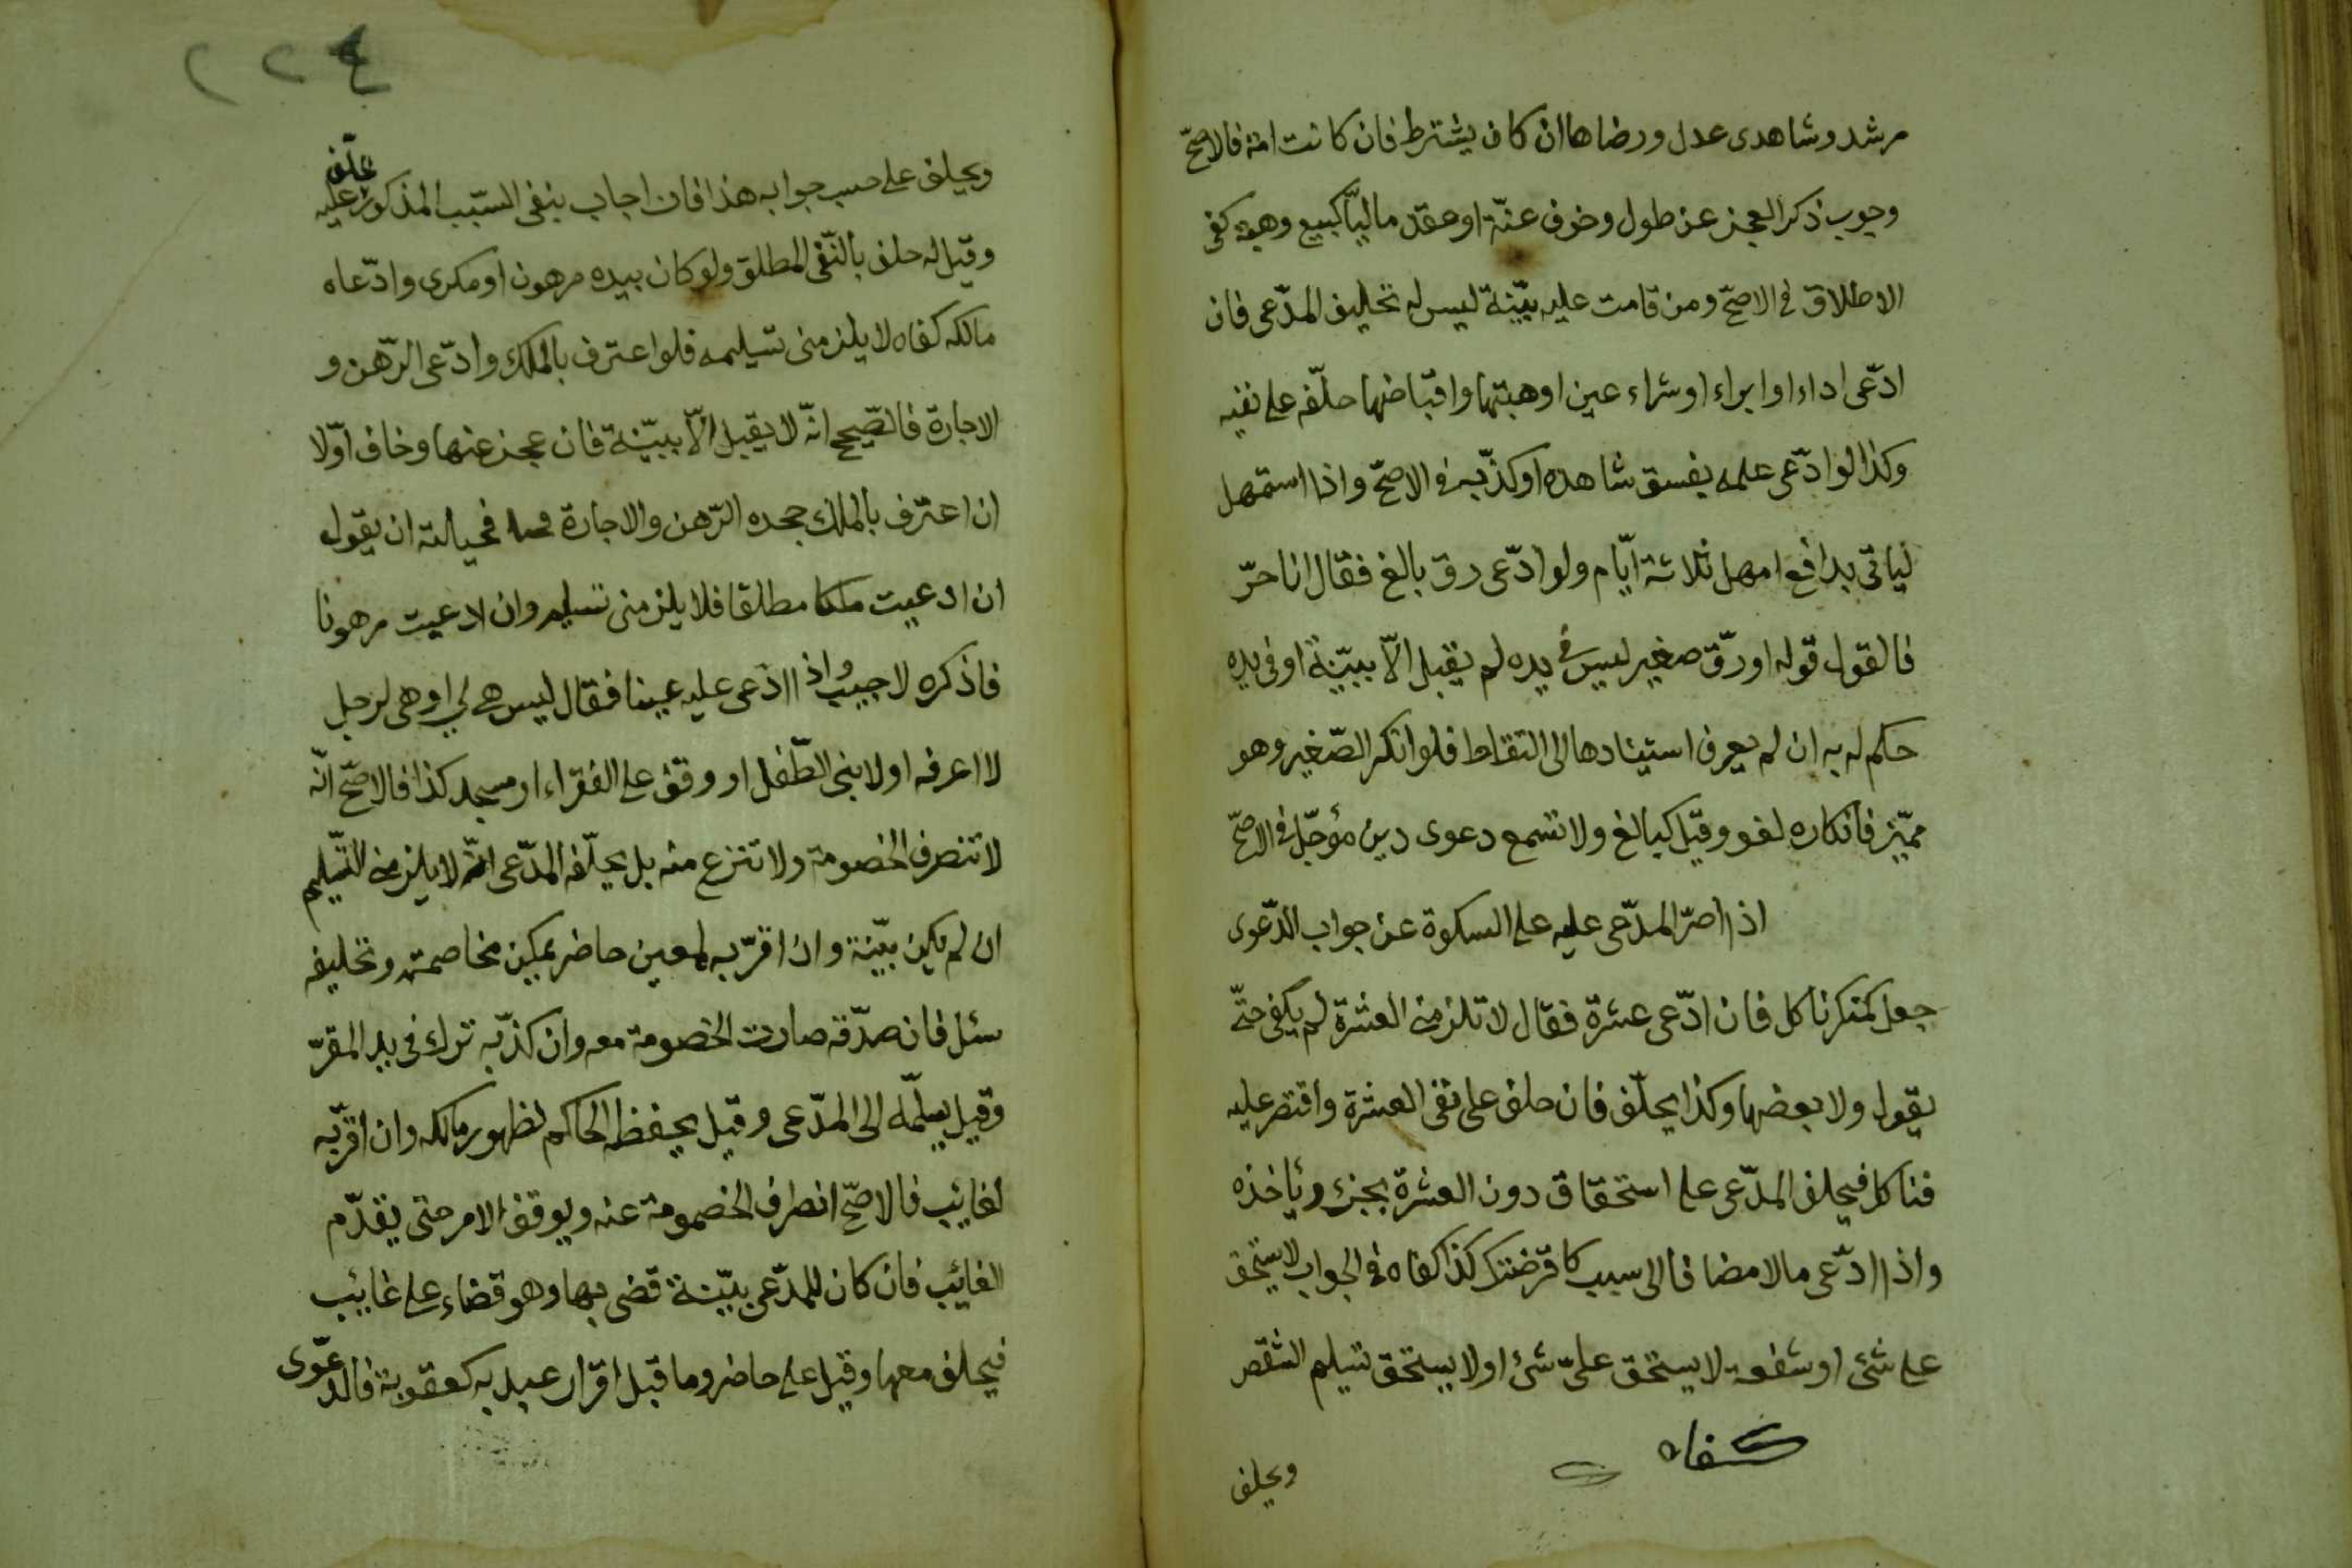 مرشد وشاهدى عدل ورضاها ان كان يشترط فان كانت امة فالاصحّ
وجوب ذكر العجز عن طول وخوف عنّة او عقد ماليّا كبيع وهبة كفى
الاطلاق فى الاصحّ ومن قامت عليه بيّنة ليس له تحليف المدّعى فان
ادّعى اداء او ابراء او شراء عين او هبتها واقباضها حلّفه على نفيه
وكذا لو ادّعى علمه بفسق شاهده او كذّبه فى الاصحّ واذا استمهل
لياتى بدافع امهل ثلاثة ايّام ولو ادّعى رق بالغ فقال انا حرّ
فالقول قوله او رقّ صغير ليس فى يده لم يقبل الاّ ببيّنة او فى يده
حكم له به ان لم يعرف استينادها الى التقاط فلو انكر الصّغير وهو
مميّز فانكاره لغو وقيل كبالغ ولا تسمع دعوى دين مؤجّل فى الاصحّ
اذا اصرّ المدّعى عليه على السكوة عن جواب الدّعوى
جعل كمنكر ناكل فان ادّعى عشرة فقال لا تلزمنى العشرة لم يكفى حتّى
يقول ولا بعضها وكذا يحلّف فان حلف على نفى العشرة واقتصر عليه
فناكل فيحلف المدّعى على استحقاق دون العشرة بجزء ويأخذه
واذا ادّعى مالا مضافا الى سبب كاقرضتك كذا كفاه فى الجواب لا يستحق
على شئ او شفعة لا يستحق علىّ شئ او لا يستحق تسليم الشقص
كفاه
ويحلف
٢٢٤
ويحلف على حسب جوابه هذا فان اجاب بنفى السّبب المذكور حلّف عليه
وقيل له حلف بالنّفى المطلق ولو كان بيده مرهون او مكرى وادّعاه
مالكه كفاه لا يلزمنى تسليمه فلو اعترف بالملك وادّعى الرّهن و
الاجارة فالصّحيح انّه لا يقبل الاّ ببيّنة فان عجز عنها وخاف اوّلا
ان اعترف بالملك جحده الرّهن والاجارة فحيالته ان يقول
ان ادعيت ملكا مطلقا فلا يلزمنى تسليم وان ادعيت مرهونا
فاذكره لاجيب واذا ادّعى عليه عينا فقال ليس هى لى او هى لرجل
لا اعرفه او لابنى الطّفل او وقف على الفقراء او مسجد كذا فالاصحّ انّه
لا تنصرف الخصومة ولا تنزع منه بل يحلّفه المدّعى انّه لا يلزمنى التّسليم
ان لم يكن بيّنة وان اقرّ به لمعين حاضر يمكن مخاصمته وتحليفه
سئل فان صدّقه صارت الخصومة معه وان كذّبه ترك فى يد المقرّ
وقيل يسلّمه الى المدّعى وقيل يحفظه الحاكم لظهور مالكه وان اقرّ به
لغايب فالاصحّ انصراف الخصومة عنه ويوقف الامر حتى يقدّم
الغائب فان كان للمدّعى بيّنة قضى بها وهو قضاء على غائب
فيحلف معها وقيل على حاضر وما قبل اقرار عبد به كعقوبة فالدّعوى